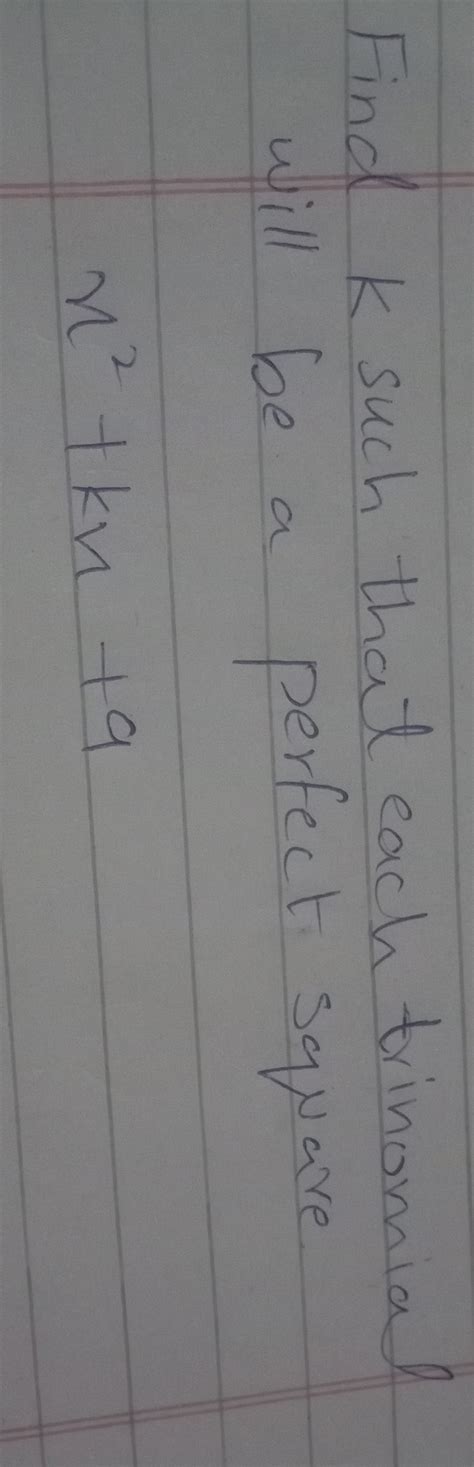 Find k such that each trinomial
will be a perfect square
x² + kx + 9